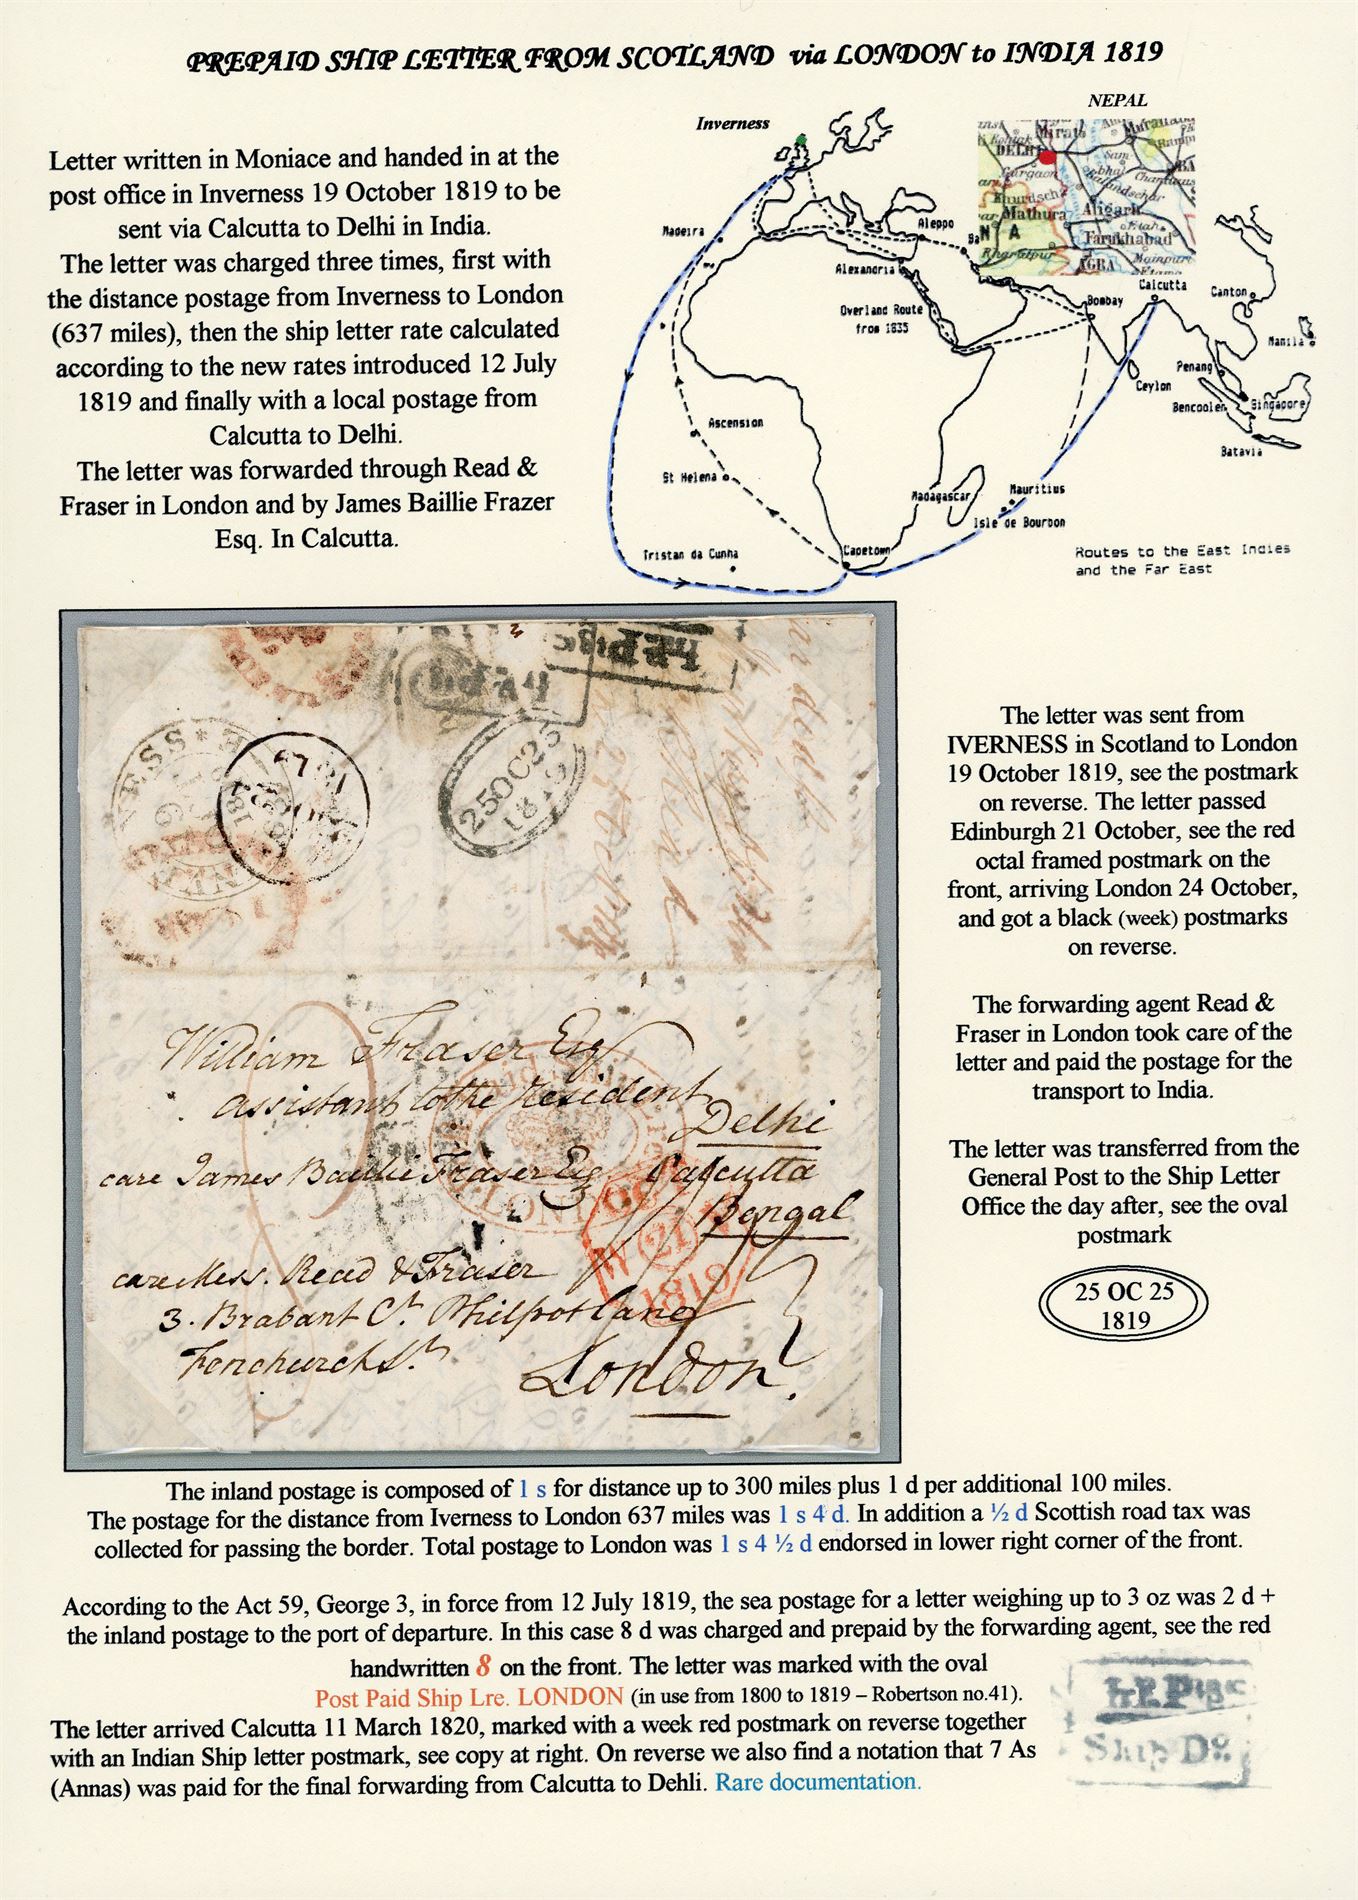 PREPAID SHIP LETTER FROM SCOTLAND via LONDON to INDIA 1819
Letter written in Moniace and handed in at the
post office in Inverness 19 October 1819 to be
sent via Calcutta to Delhi in India.
The letter was charged three times, first with
the distance postage from Inverness to London
(637 miles), then the ship letter rate calculated
according to the new rates introduced 12 July
1819 and finally with a local postage from
Calcutta to Delhi.
The letter was forwarded through Read &
Fraser in London and by James Baillie Frazer
Esq. In Calcutta.
Inverness
NEPAL
Mirat
DELHI
Gurgaon
Sam-
bhal
Chandaus
Khurdscha
Mathura
Aligarh
N A
Farukhabad
Bharatpur
AGRA
Mainpuri
Etawa
Madeira
Aleppo
Ba
Alexandria
Overland Route
from 1835
Bombay
Calcutta
Canton
Manila
Penang
Ceylon
Bencoolen
Singapore
Batavia
Ascension
St Helena
Madagascar
Mauritius
Isle de Bourbon
Tristan da Cunha
Capetown
Routes to the East Indies
and the Far East
25OC25
1819
William Fraser Esq
assistant to the Resident
Delhi
care James Baillie Fraser Esq Calcutta
Bengal
LONDON
21
1819
care Mess. Read & Fraser
3. Brabant Ct. Philpot Lane
Fenchurch St.
London.
The letter was sent from
IVERNESS in Scotland to London
19 October 1819, see the postmark
on reverse. The letter passed
Edinburgh 21 October, see the red
octal framed postmark on the
front, arriving London 24 October,
and got a black (week) postmarks
on reverse.
The forwarding agent Read &
Fraser in London took care of the
letter and paid the postage for the
transport to India.
The letter was transferred from the
General Post to the Ship Letter
Office the day after, see the oval
postmark
25 OC 25
1819
The inland postage is composed of 1 s for distance up to 300 miles plus 1 d per additional 100 miles.
The postage for the distance from Iverness to London 637 miles was 1 s 4 d. In addition a ½ d Scottish road tax was
collected for passing the border. Total postage to London was 1 s 4 ½ d endorsed in lower right corner of the front.
According to the Act 59, George 3, in force from 12 July 1819, the sea postage for a letter weighing up to 3 oz was 2 d +
the inland postage to the port of departure. In this case 8 d was charged and prepaid by the forwarding agent, see the red
handwritten 8 on the front. The letter was marked with the oval
Post Paid Ship Lre. LONDON (in use from 1800 to 1819 – Robertson no.41).
The letter arrived Calcutta 11 March 1820, marked with a week red postmark on reverse together
with an Indian Ship letter postmark, see copy at right. On reverse we also find a notation that 7 As
(Annas) was paid for the final forwarding from Calcutta to Dehli. Rare documentation.
Ship Do.